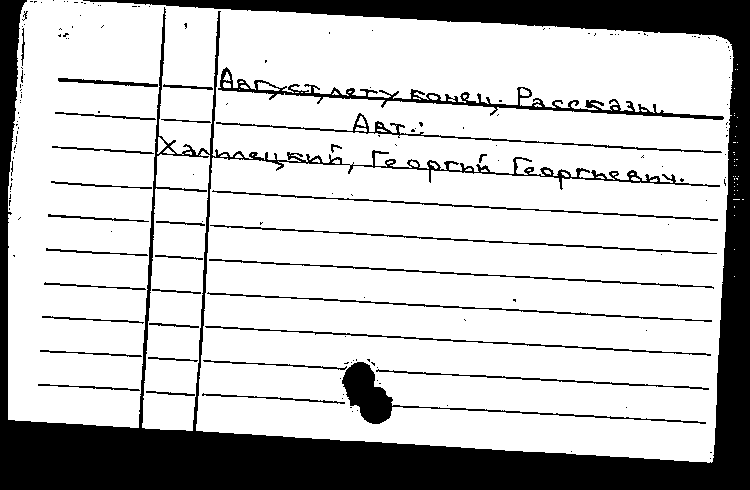 Август, лету конец. Рассказы.
Авт.:
Халилецкий, Георгий Георгиевич.